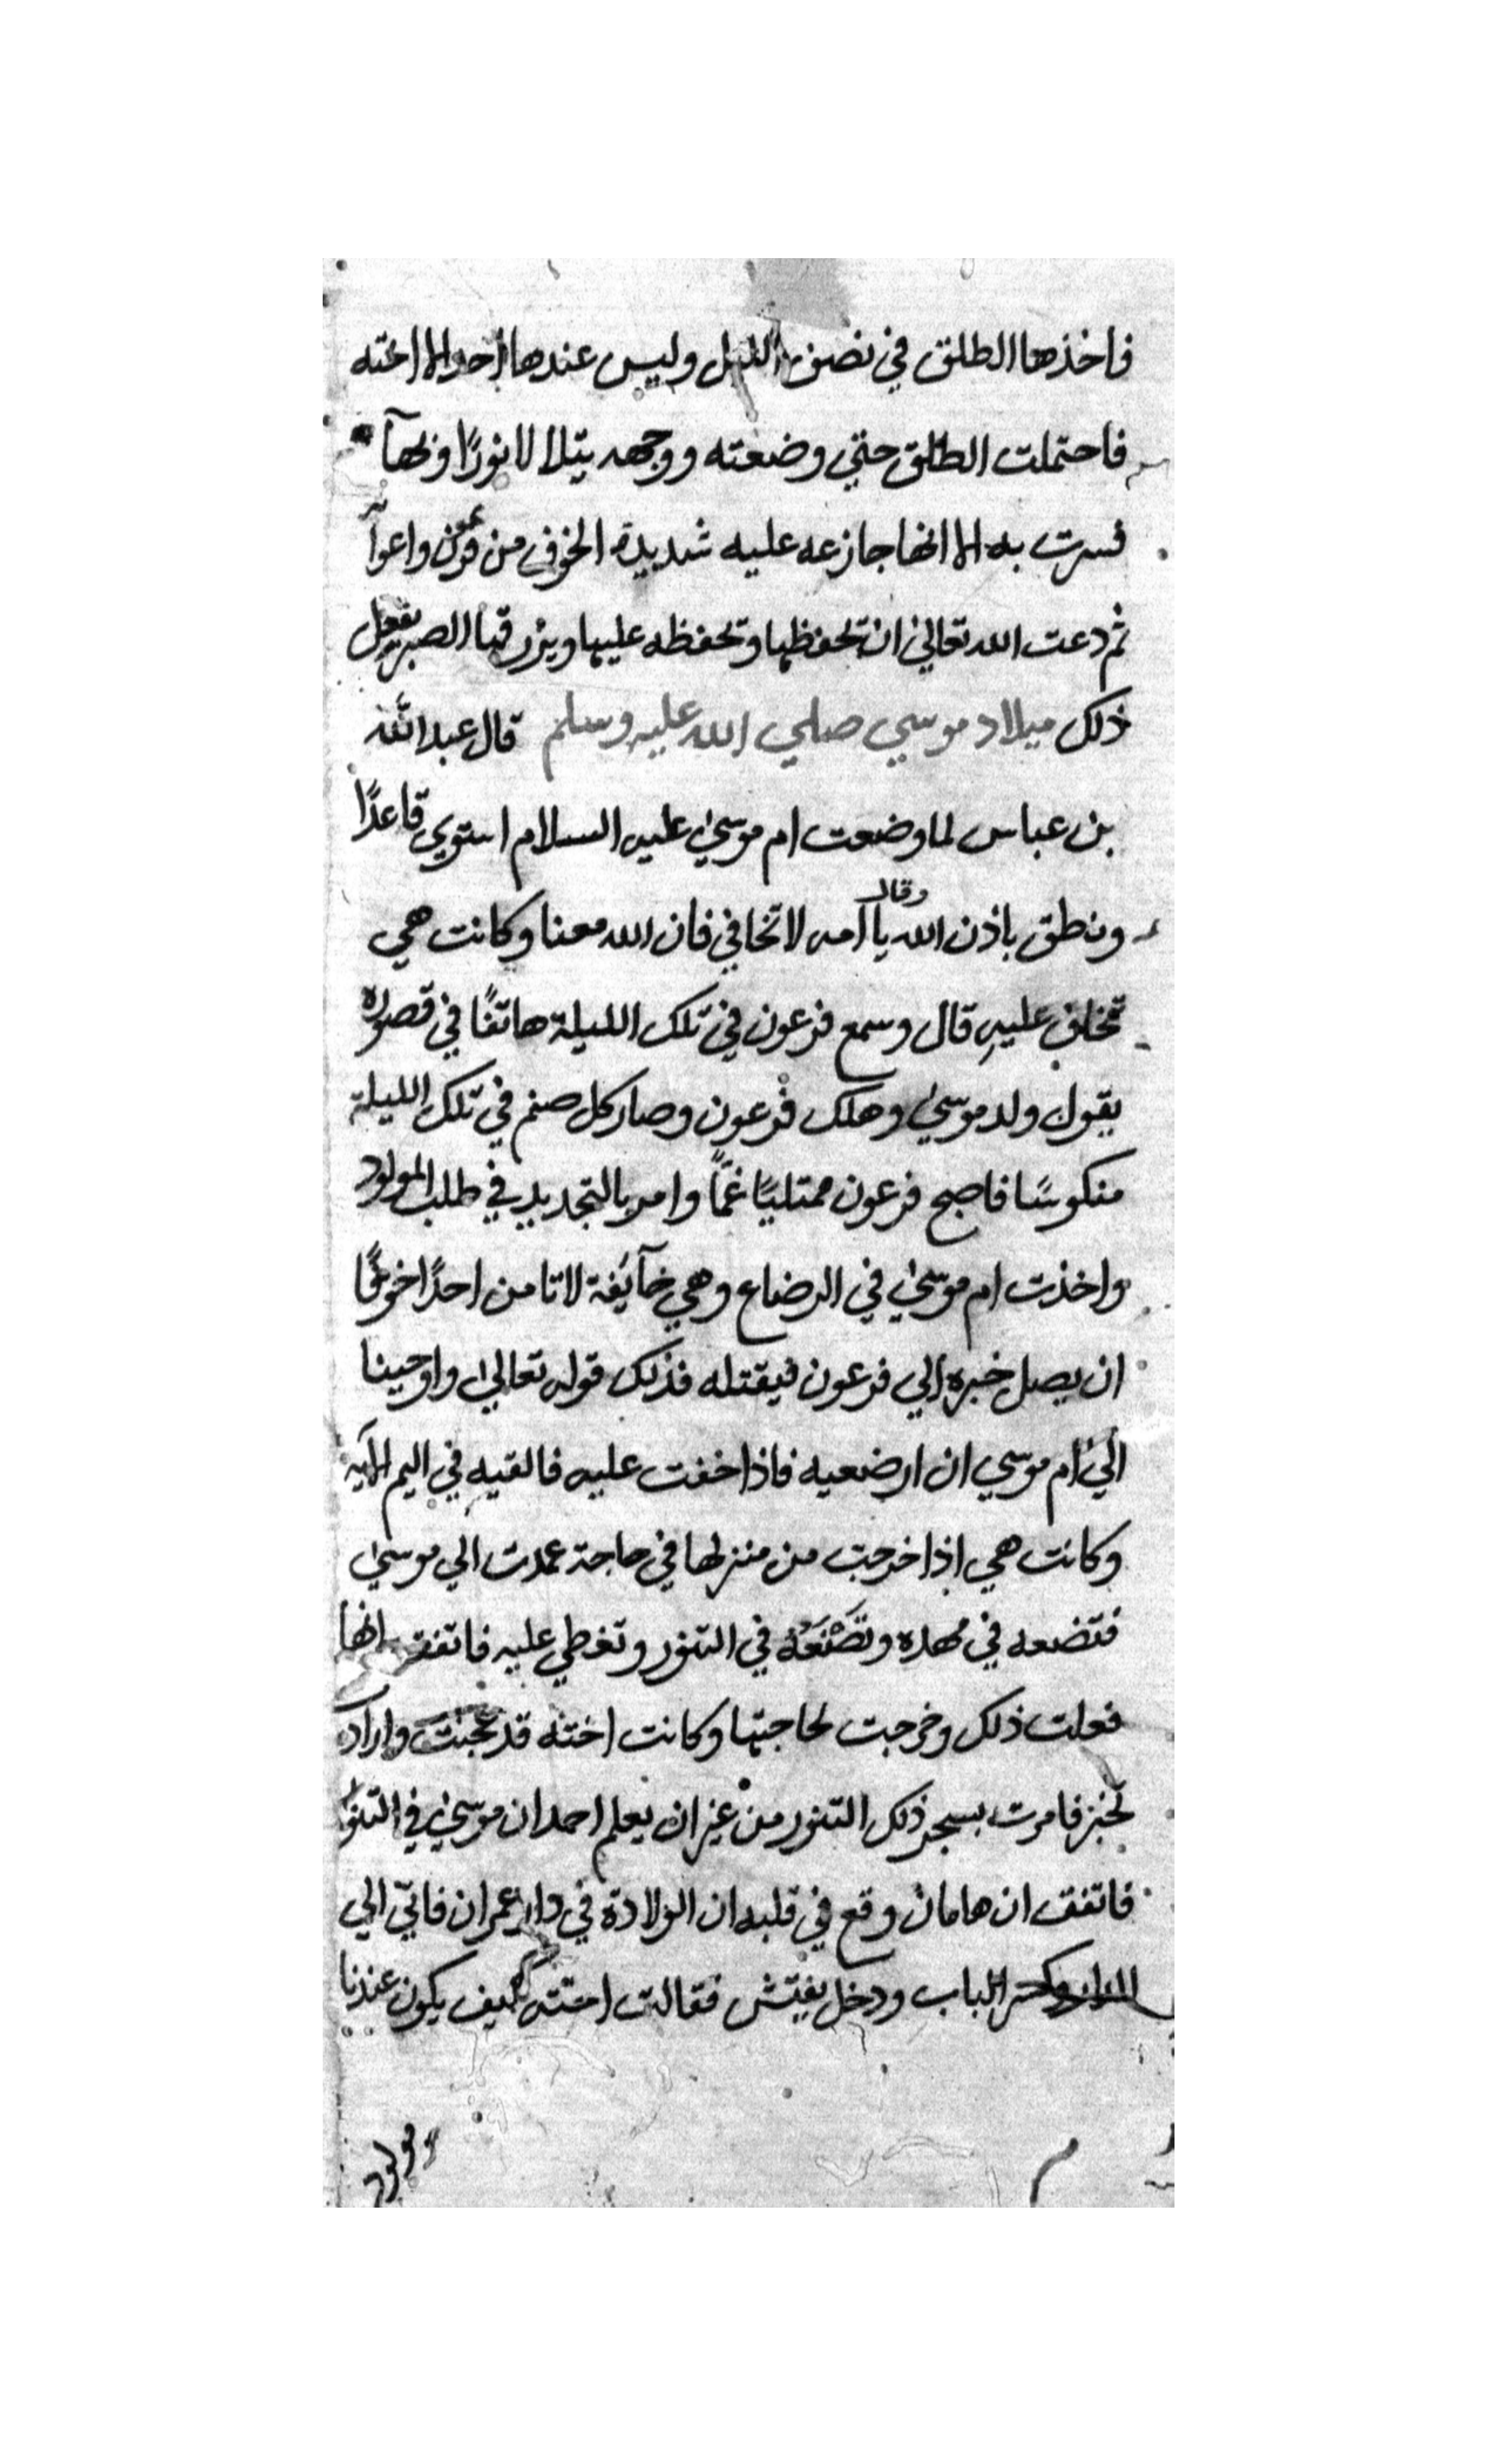 فاخذها الطلق في نصف الليل وليس عندها احدا الا اخته
فاحتملت الطلق حتي وضعته ووجهه يتلا لا نورًا وبهآ
فسرت به الا انها جازعه عليه شديدة الخوف من فرعون واعوا
ثم دعت الله تعالي ان تحفظها وتحفظه عليها ويرزقها الصبر بفعل
ذلك ميلاد موسي صلي الله عليه وسلم قال عبد الله
بن عباس لما وضعت ام موسي عليه السلام استوي قاعدًا
ونطق باذن الله وقال يا امه لا تخافي فان الله معنا وكانت هي
تخاف عليه قال وسمع فرعون في تلك الليلة هاتفًا في قصوره
يقول ولد موسي وهلك فرعون وصار كل صنم في تلك الليلة
منكوسًا فاصبح فرعون ممتليًا غمًا وامر بالتجديد في طلب المولود
واخذت ام موسي في الرضاع وهي خآيفة لا تامن احدًا خوفًا
ان يصل خبره الي فرعون فيقتله فذلك قوله تعالي واوحينا
الي ام موسي ان ارضعيه فاذا خفت عليه فالقيه في اليم الآيه
وكانت هي اذا خرجت من منزلها في حاجة عمدت الي موسي
فتضعه في مهده وتَضَعَهُ في التنور وتغطي عليه فاتفق انها
فعلت ذلك وخرجت لحاجتها وكانت اخته قد عجنت وارادت
تخبز فامرت بسجر ذلك التنور من غير ان يعلم احد ان موسي في التنور
فاتفق ان هامان وقع في قلبه ان الولادة في دار عمران فاتي الي
الدار وكسر الباب ودخل يفتش فقالت اخته كيف يكون عندنا
مولود